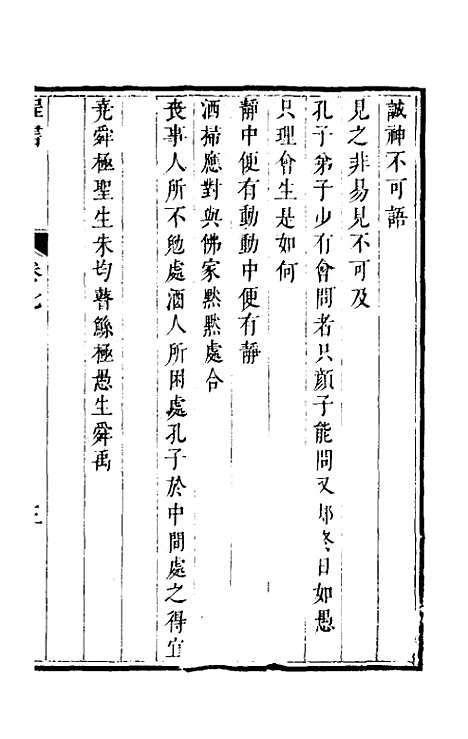 誠神不可語
見之非易見不可及
孔子弟子少有會問者只顔子能問又却終日如愚
只理會生是如何
靜中便有動動中便有靜
洒掃應對與佛家黙黙處合
喪事人所不勉處酒人所困處孔子於中間處之得宜
堯舜極聖生朱均瞽鯀極愚生舜禹
程書
卷七
三